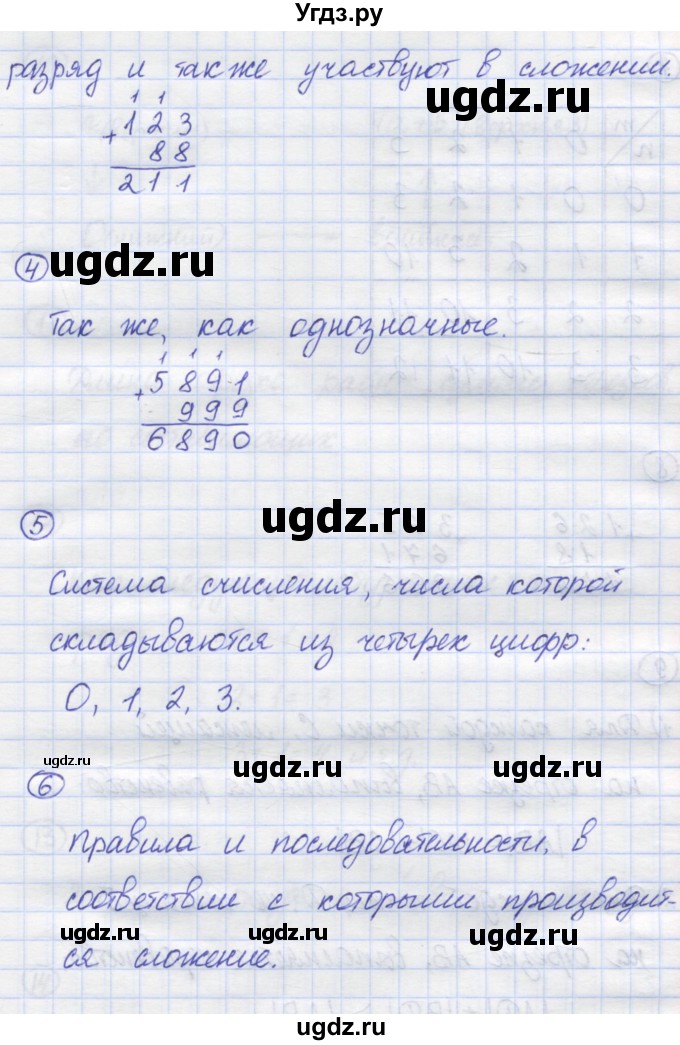 Угдз.ру
разряд и также участвуют в сложении.
ugdz.ru
1 1
+ 1 2 3
8 8
2 1 1
4
ugdz.ru
Так же, как однозначные.
1 1 1
+ 5 8 9 1
9 9 9
6 8 9 0
5
ugdz.ru
Система счисления, числа которой
складываются из четырех цифр:
0, 1, 2, 3.
ugdz.ru ugdz.ru ugdz.ru
6
Правила и последовательности, в
соответствии с которыми производит-
ugdz.ru ugdz.ru ugdz.ru
ся сложение.
ugdz.ru